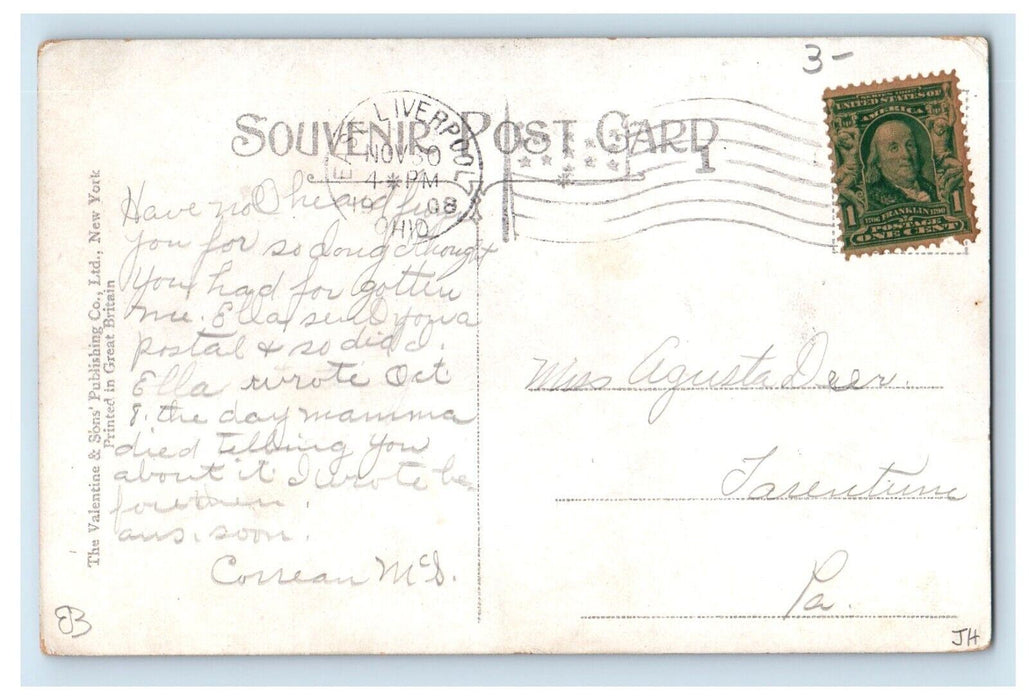 3-
SOUVENIR POST CARD
EAST LIVERPOOL
NOV 30
4 PM
1908
OHIO
1
SERIES 1902
UNITED STATES OF
AMERICA
1706 FRANKLIN 1790
1 1
POSTAGE
ONE CENT
The Valentine & Sons' Publishing Co., Ltd., New York
Printed in Great Britain
Have not heard from
you for so long I thought
you had for gotten
me. Ella send you a
postal & so did I.
Ella wrote Oct
8. the day mamma
died telling you
about it I wrote be-
fore then.
ans. soon.
Correan McD.
Miss Agusta Deer.
Tarentum
Pa.
EB
JH